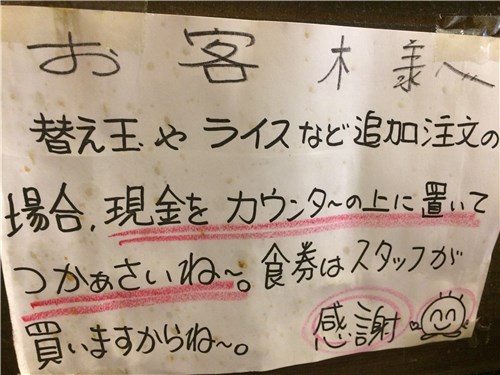 お客様へ
替え玉や ライスなど追加注文の
場合、現金を カウンター〜の上に置いて
つかぁさいね〜。食券はスタッフが
買いますからね〜。 感謝